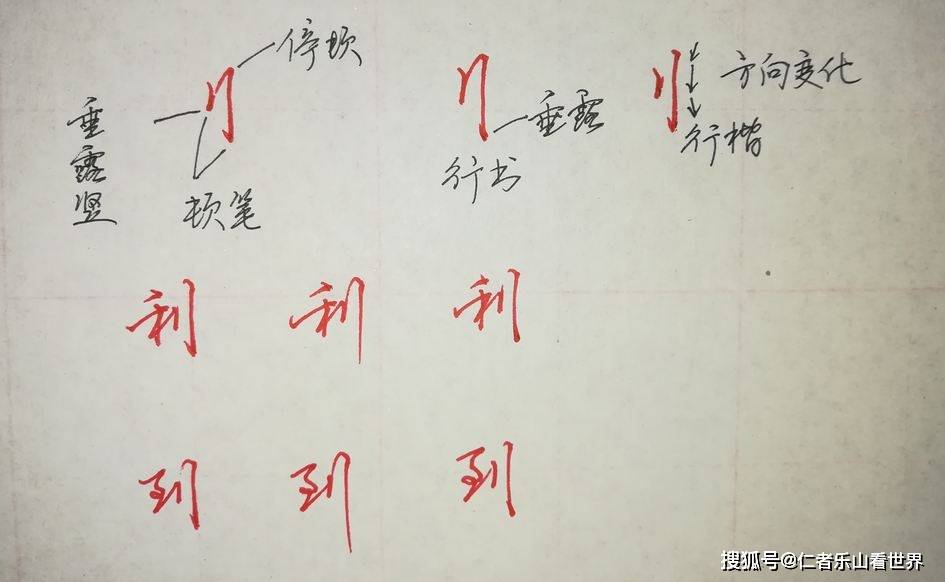 停顿
垂露竖
顿笔
刂
刂
垂露
行书
刂
方向变化
行楷
利 利 利
到 到 到
搜狐号@仁者乐山看世界